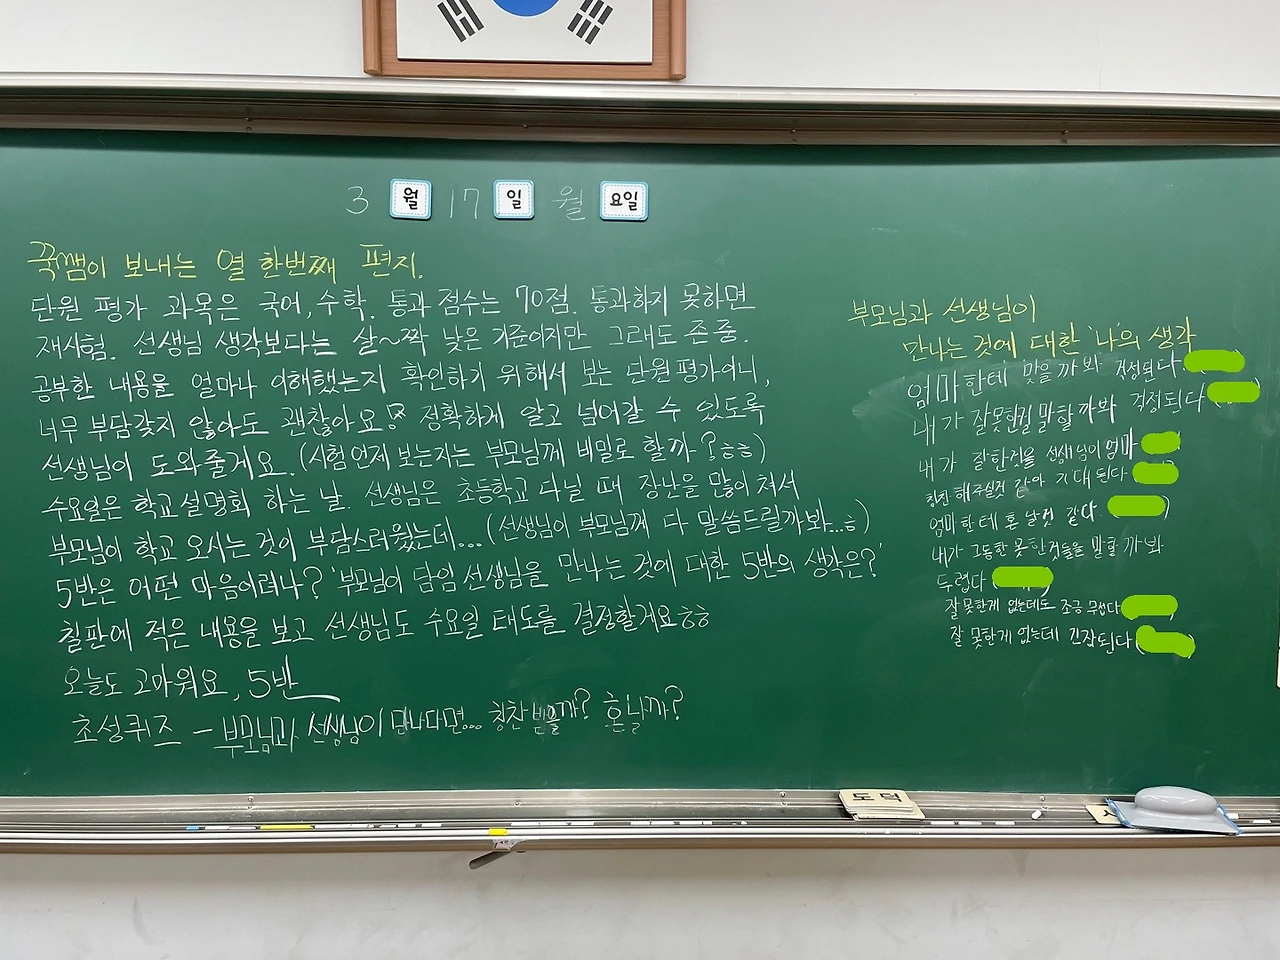 3 월 17 일 월 요일
꾹쌤이 보내는 열 한번째 편지.
단원 평가 과목은 국어, 수학. 통과 점수는 70점. 통과하지 못하면
재시험. 선생님 생각보다는 살~짝 낮은 기준이지만 그래도 존중.
공부한 내용을 얼마나 이해했는지 확인하기 위해서 보는 단원평가이니,
너무 부담갖지 않아도 괜찮아요 정확하게 알고 넘어갈 수 있도록
선생님이 도와줄게요. (시험 언제 보는지는 부모님께 비밀로 할까?ㅎㅎ)
수요일은 학교설명회 하는 날. 선생님은 초등학교 다닐 때 장난을 많이 쳐서
부모님이 학교 오시는 것이 부담스러웠는데... (선생님이 부모님께 다 말씀드릴까봐...ㅎ)
5반은 어떤 마음이려나? '부모님이 담임 선생님을 만나는 것에 대한 5반의 생각은?'
칠판에 적은 내용을 보고 선생님도 수요일 태도를 결정할게요ㅎㅎ
오늘도 고마워요, 5반
초성퀴즈 - 부모님과 선생님이 만나다면... 칭찬 받을까? 혼날까?
부모님과 선생님이
만나는 것에 대한 '나'의 생각
엄마한테 맞을까봐 걱정된다
내가 잘못한걸 말할까봐 걱정된다
내가 잘한것을 선생님이 엄마
칭찬해주실것 같아 기대된다
엄마한테 혼날것 같다.
내가 그동한 못한것들을 말할까봐
두렵다
잘못한게 없는데도 조금 무섭다
잘못한게 없는데 긴장된다
도덕